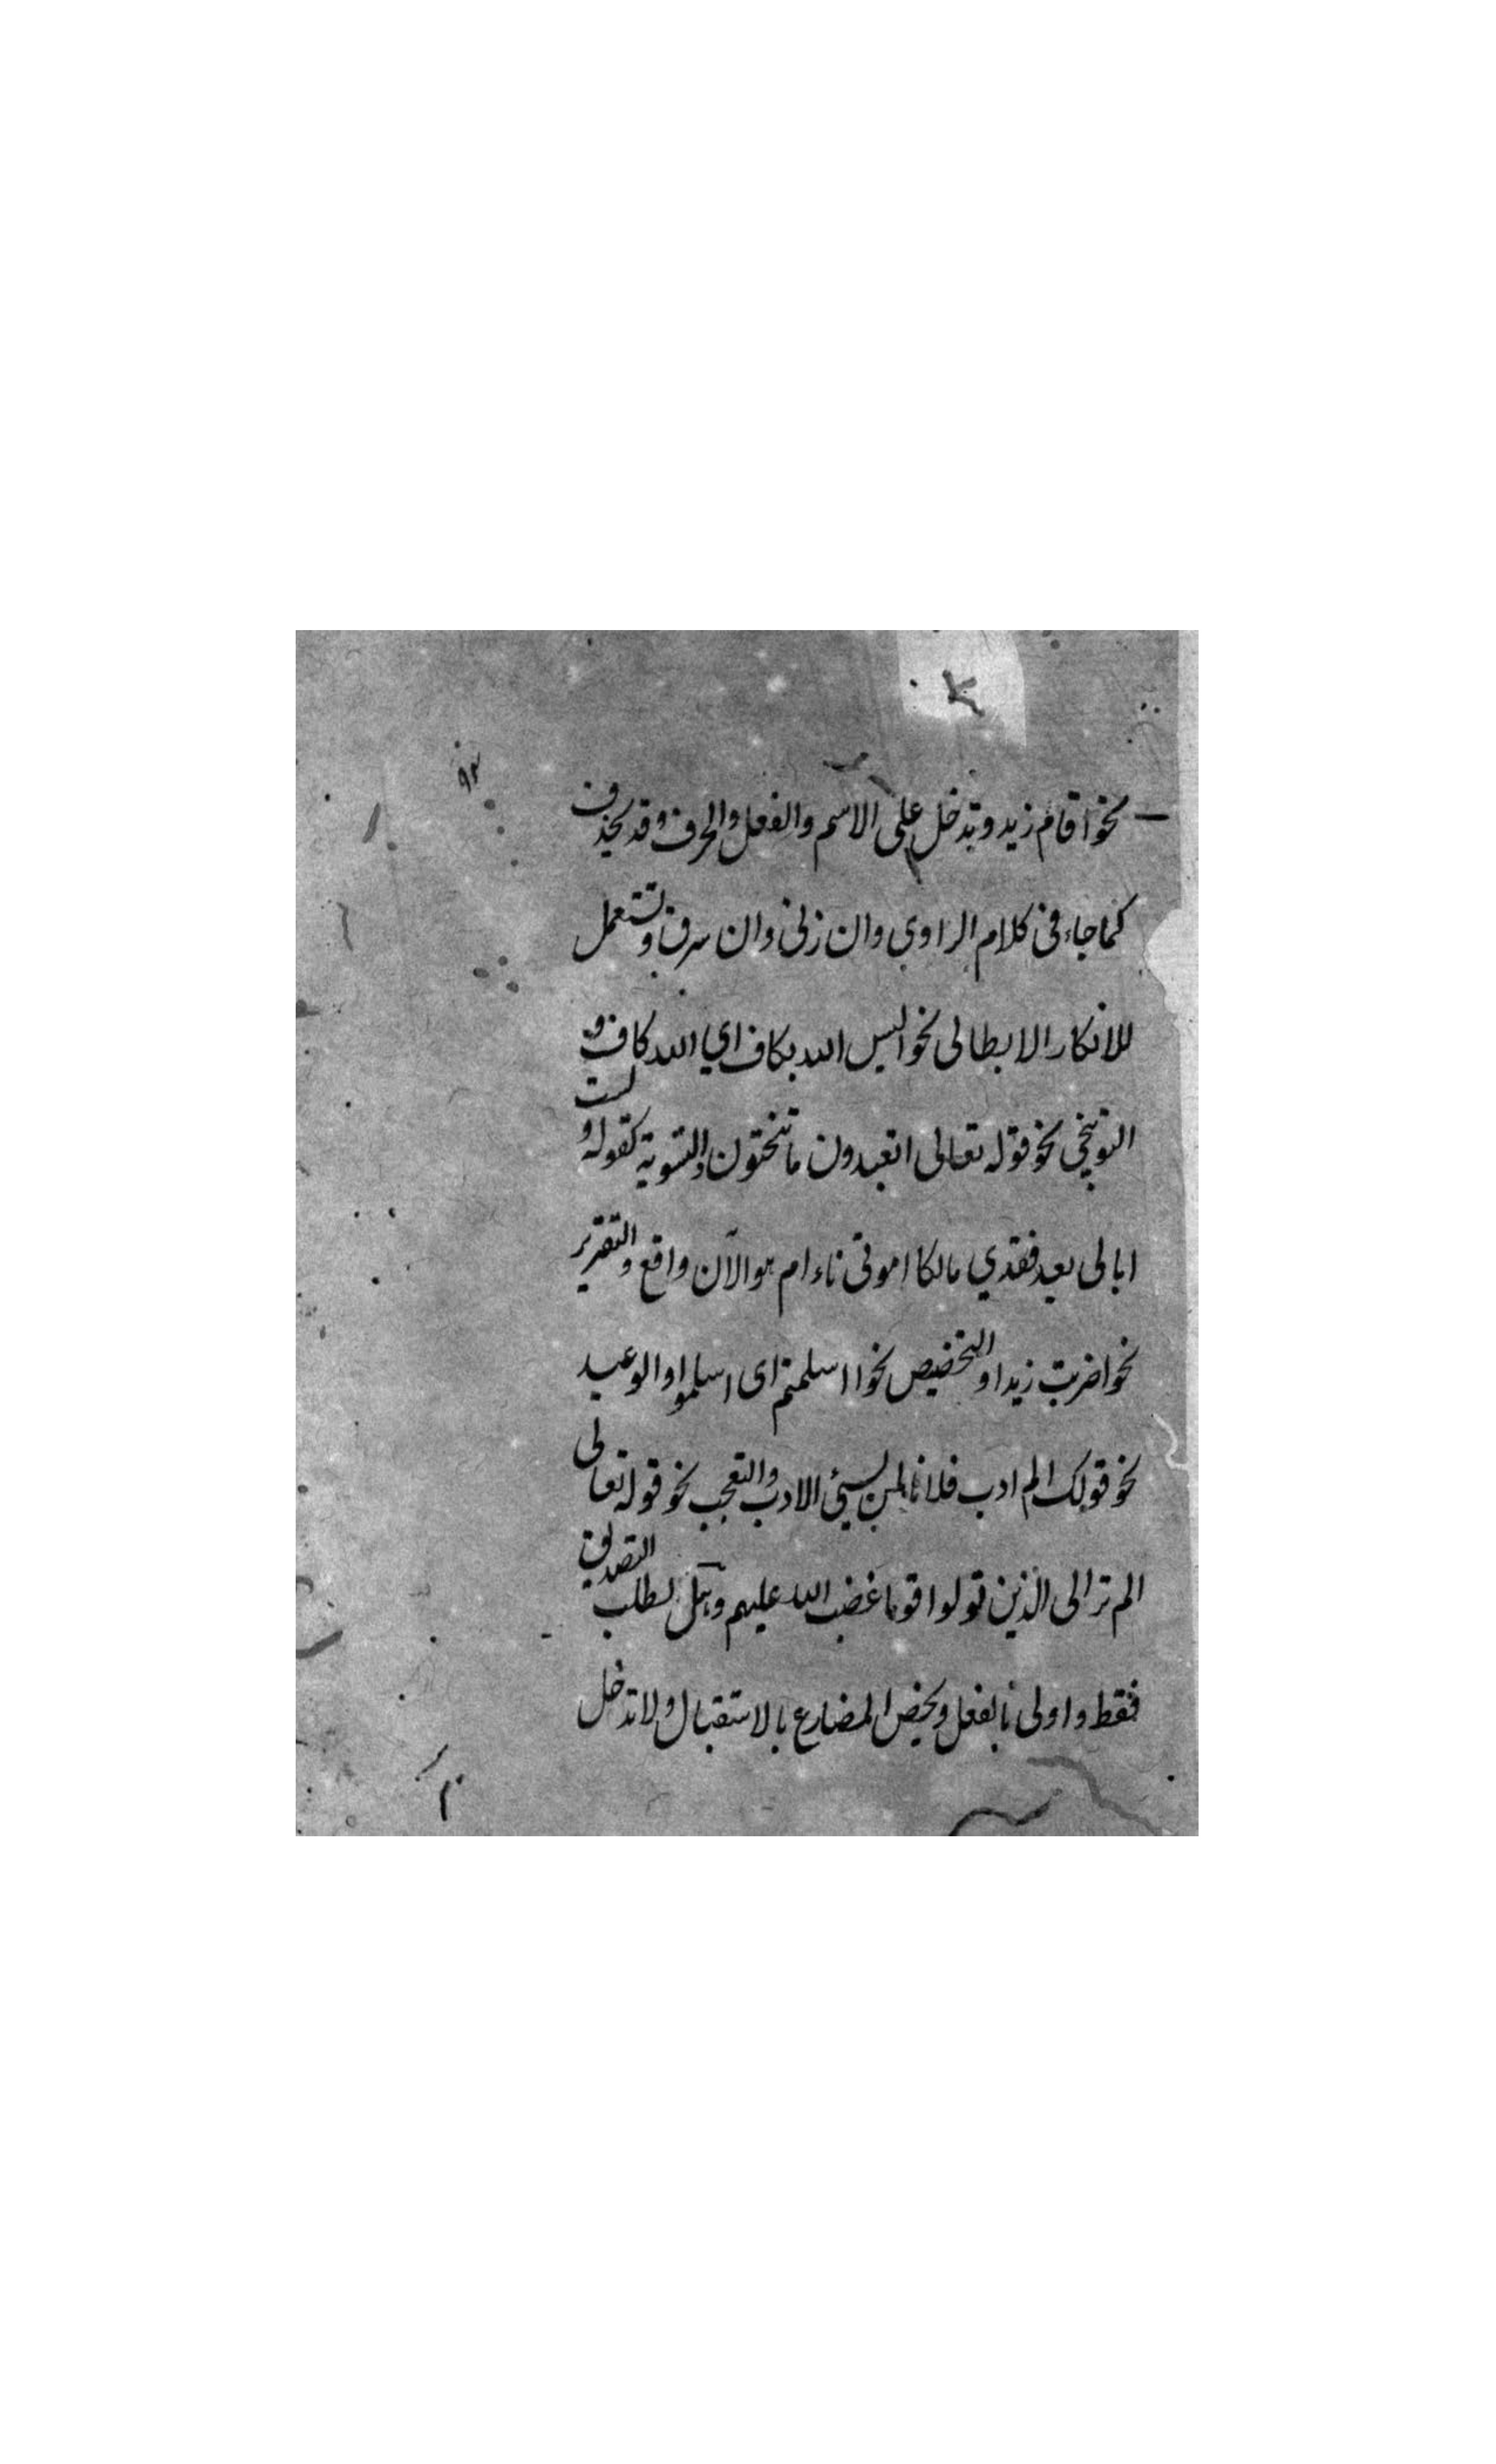 ٩٣
نحو اقام زيد وتدخل على الاسم والفعل والحرف وقد يحذف
كما جاء في كلام الراوي وان زنى وان سرق وتستعمل
للانكار الابطالى نحو اليس الله بكاف اي الله كاف و
التوبيخي نحو قوله تعالى اتعبدون ما تنحتون والتسوية كقوله ولست
ابالى بعد فقدي مالكا اموتى ناء ام هو الآن واقع والتقرير
نحو اضربت زيدا والتحضيض نحو ااسلمتم اى اسلموا والوعيد
نحو قولك الم ادب فلانا لمن يسيئ الادب والتعجب نحو قوله تعالى
الم تر الى الذين تولوا قوما غضب الله عليهم وهل لطلب التصديق
فقط واولى بالفعل ويخص المضارع بالاستقبال ولا تدخل